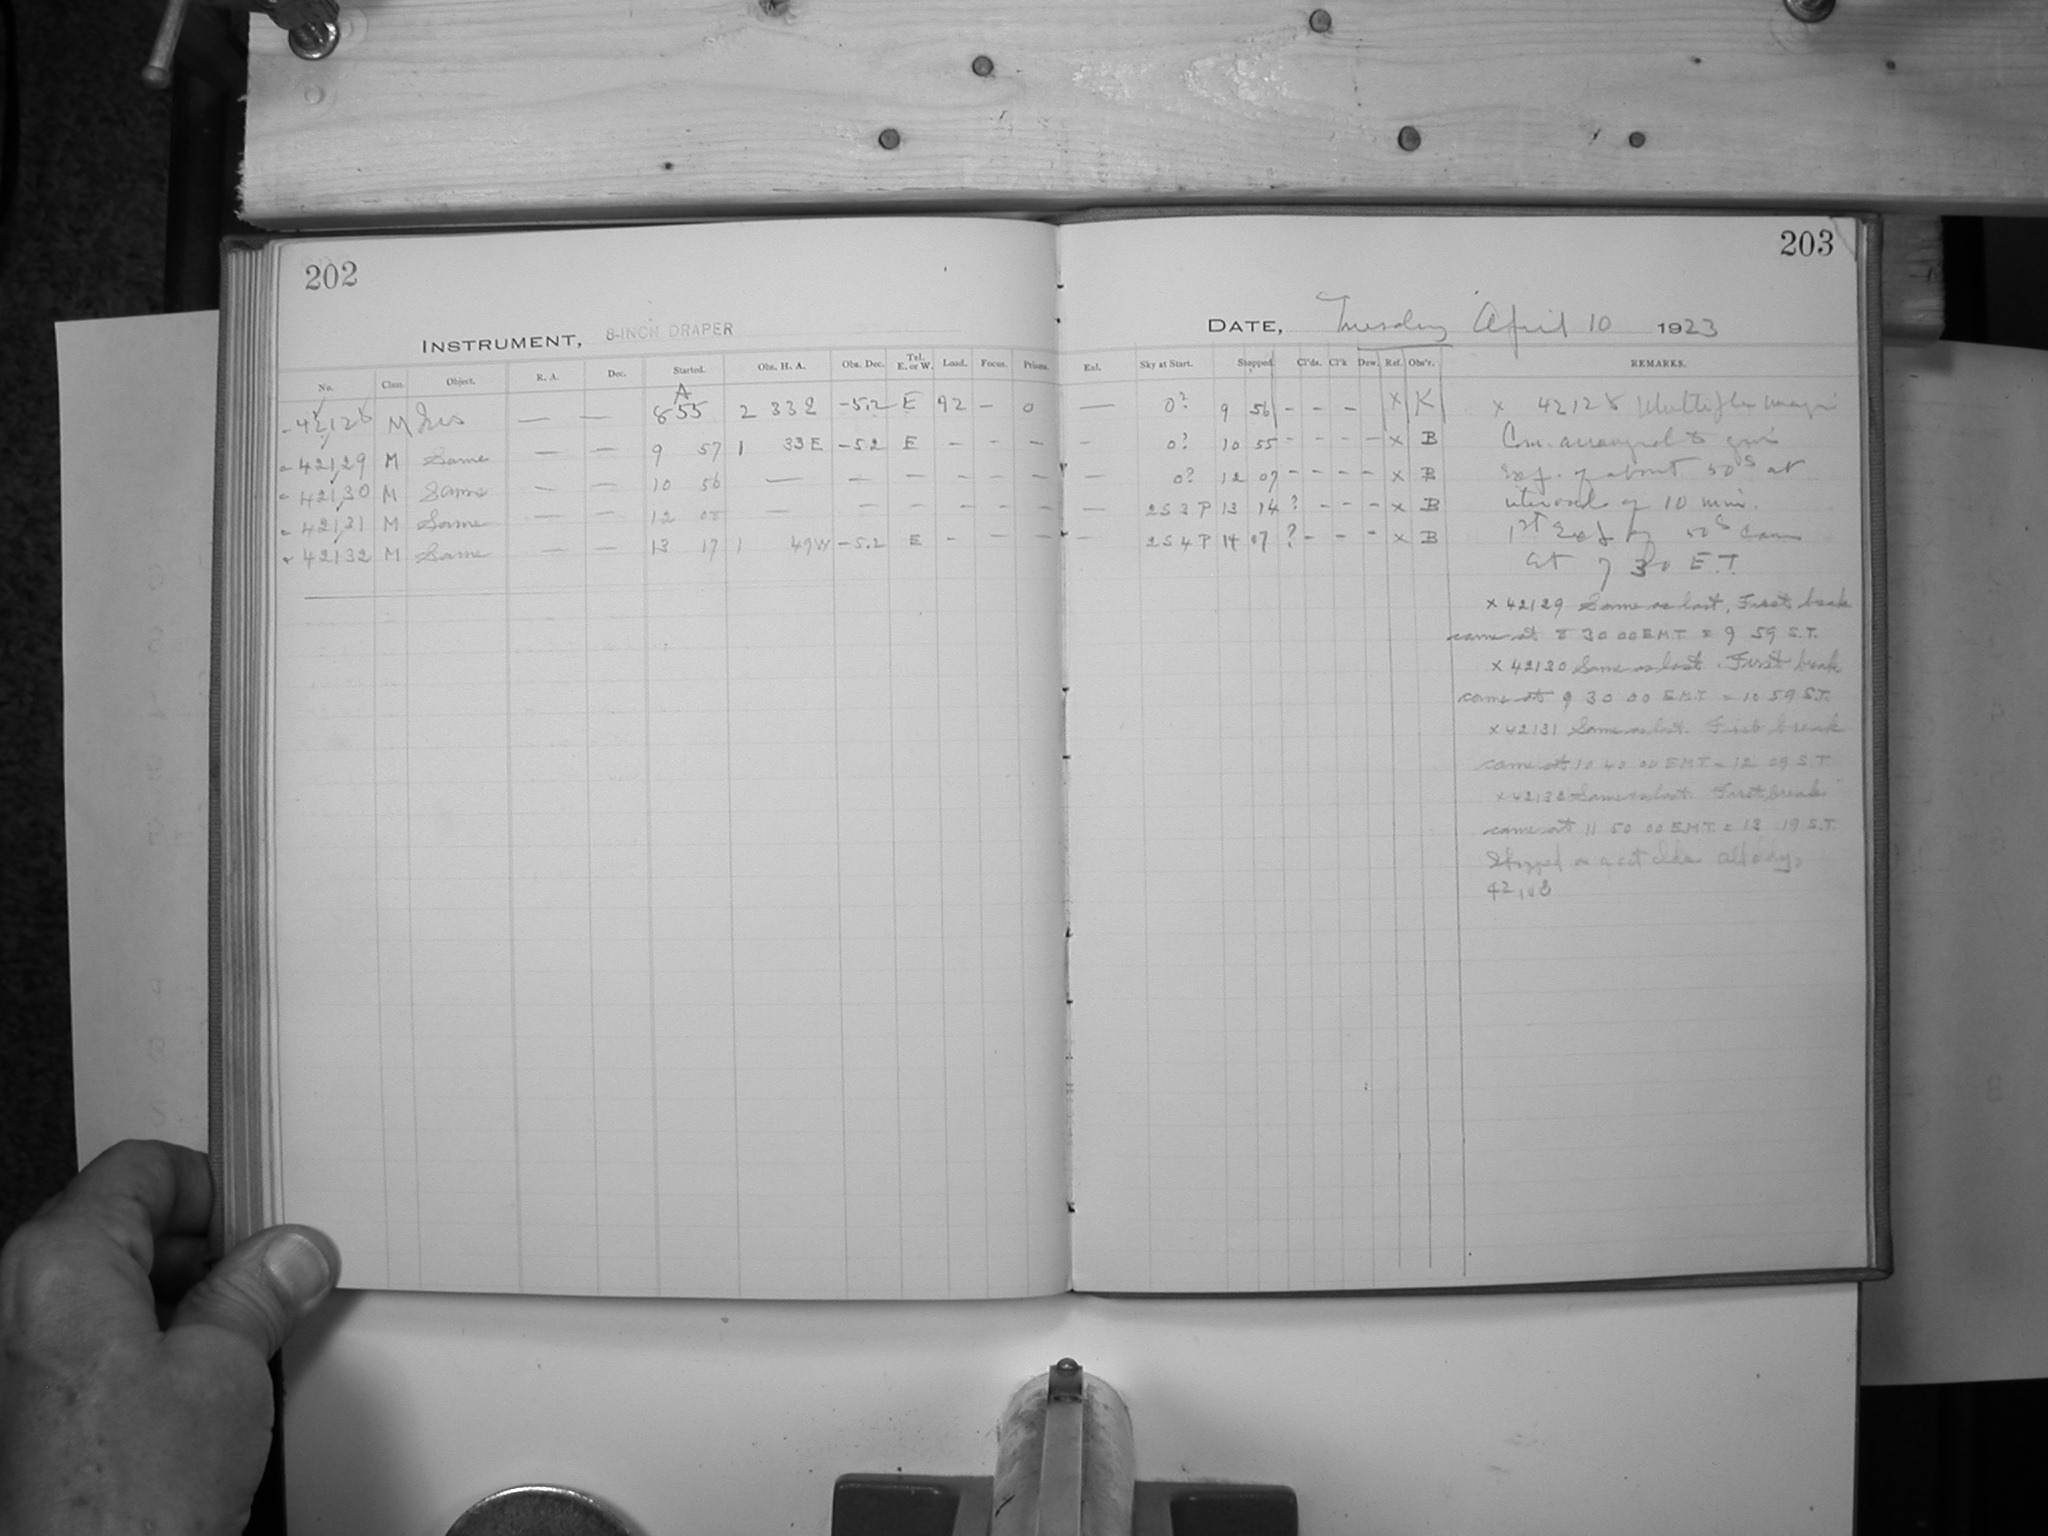 202
INSTRUMENT, 8-INCH DRAPER
No. Class. Object. R. A. Dec. Started. Obs. H. A. Obs. Dec. Tel. E. or W. Load. Focus. Prisms.
A
42128 M Iris — — 8 55 2 33 E -5.2 E 92 - 0
42129 M Same — — 9 57 1 33 E -5.2 E - - -
42130 M Same — — 10 56 — — — — — —
42131 M Same — — 12 08 — — — — — —
42132 M Same — — 13 17 1 49 W -5.2 E - - -
203
DATE, Tuesday April 10 1923
Enl. Sky at Start. Stopped. Cl'ds. Cl'k Dew. Ref. Obs'r. REMARKS.
— 0? 9 56 - - - X K
- 0? 10 55 - - - - X B
— 0? 12 07 - - - - X B
— 2S3P 13 14 ? - - - X B
— 2S4P 14 07 ? - - - X B
x 42128 Multiple
Cam. arranged to give
Exp. of about 50s at
intervals of 10 min.
1st Exp by 50s Cam
at 7 30 E.T.
x 42129 Same as last, First break
came at 8 30 00 E.M.T. = 9 59 S.T.
x 42130 Same as last. First break
came at 9 30 00 E.M.T. = 10 59 S.T.
x 42131 Same as last. First break
came at 10 40 00 E.M.T. = 12 09 S.T.
x 42132 Same as last. First break
came at 11 50 00 E.M.T. = 13 19 S.T.
Stopped on